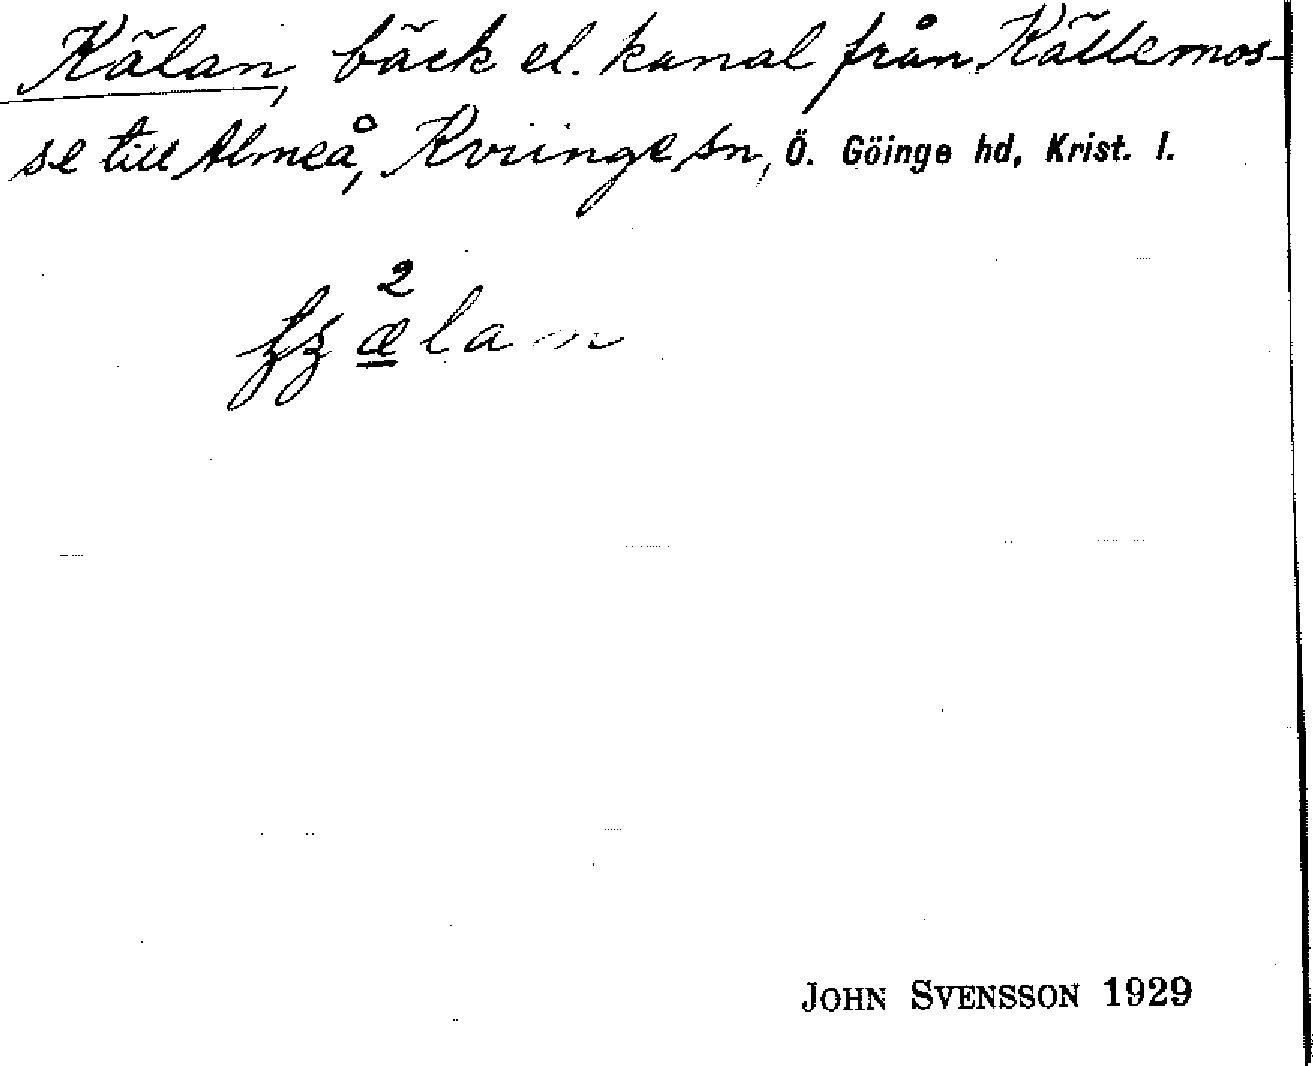 Kälan, bäck el. kanal från Källemos-
se till Almeå, Kviinge sn, Ö. Göinge hd, Krist. l.
2
ælan
JOHN SVENSSON 1929